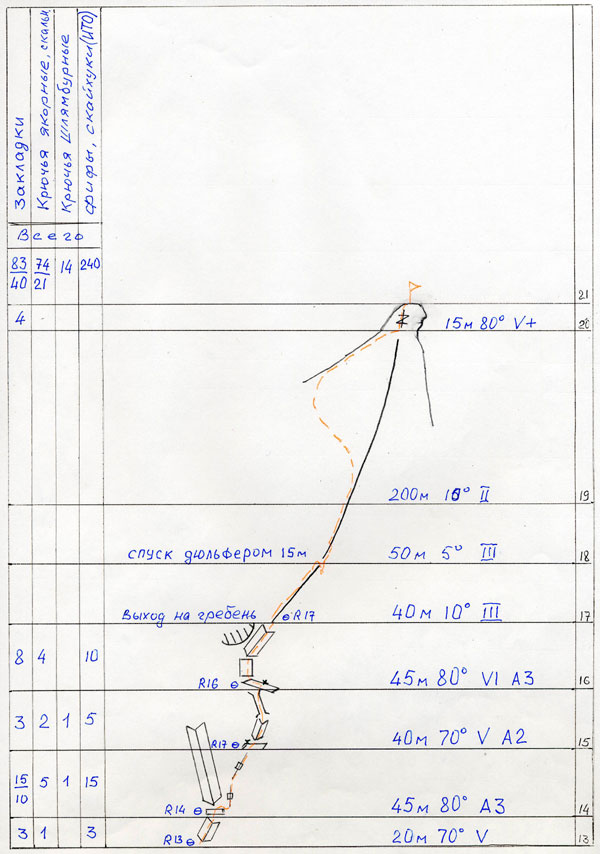 Закладки
Крючья якорные, скальн
Крючья шлямбурные
Фифы, скайхуки (ИТО)
Всего
83/40 74/21 14 240
21
4 15м 80° V+ 20
200м 10° II 19
спуск дюльфером 15м 50м 5° III 18
Выход на гребень R17 40м 10° III 17
8 4 10 R16 45м 80° VI A3 16
3 2 1 5 R17 40м 70° V A2 15
15/10 5 1 15 R14 45м 80° A3 14
3 1 3 R13 20м 70° V 13